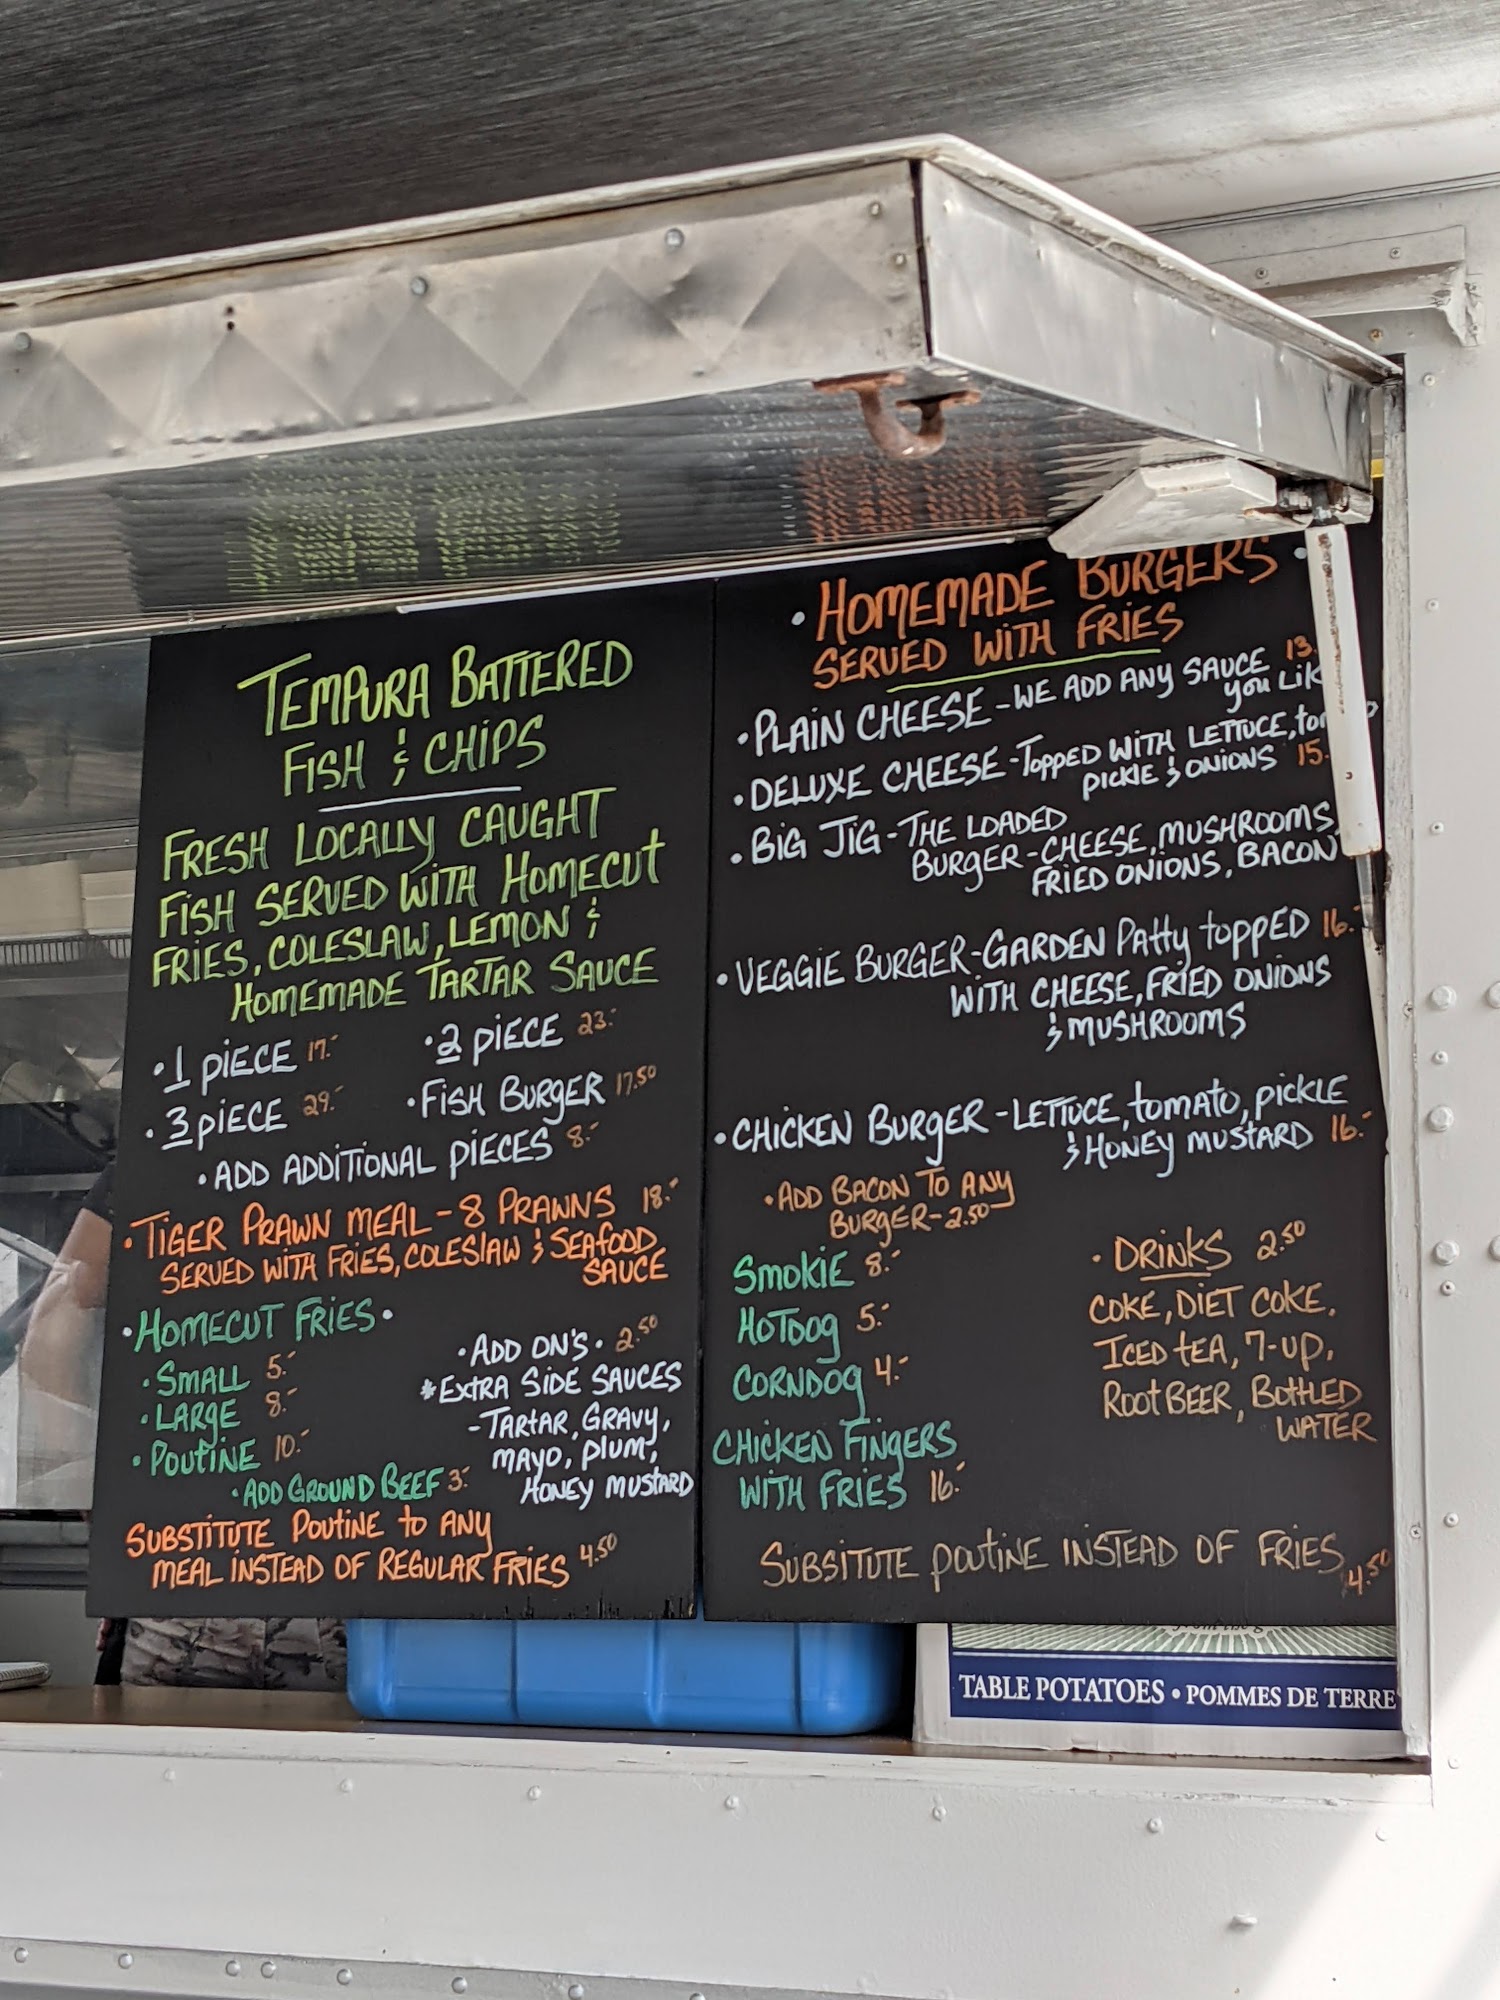 TEMPURA BATTERED
FISH & CHIPS
FRESH LOCALLY CAUGHT
FISH SERVED WITH HOMECUT
FRIES, COLESLAW, LEMON &
HOMEMADE TARTAR SAUCE
• 1 PIECE 17.-
• 2 PIECE 23.-
• 3 PIECE 29.-
• FISH BURGER 17.50
• ADD ADDITIONAL PIECES 8.-
• TIGER PRAWN MEAL - 8 PRAWNS 18.-
SERVED WITH FRIES, COLESLAW & SEAFOOD
SAUCE
• HOMECUT FRIES •
• SMALL 5.-
• LARGE 8.-
• POUTINE 10.-
• ADD GROUND BEEF 3.-
• ADD ON'S • 2.50
* EXTRA SIDE SAUCES
- TARTAR, GRAVY,
MAYO, PLUM,
HONEY MUSTARD
SUBSTITUTE POUTINE TO ANY
MEAL INSTEAD OF REGULAR FRIES 4.50
• HOMEMADE BURGERS •
SERVED WITH FRIES
• PLAIN CHEESE - WE ADD ANY SAUCE 13.
YOU LIK
• DELUXE CHEESE - TOPPED WITH LETTUCE,
PICKLE & ONIONS 15.
• BIG JIG - THE LOADED
BURGER - CHEESE, MUSHROOMS,
FRIED ONIONS, BACON
• VEGGIE BURGER - GARDEN PATTY TOPPED 16.-
WITH CHEESE, FRIED ONIONS
& MUSHROOMS
• CHICKEN BURGER - LETTUCE, TOMATO, PICKLE
& HONEY MUSTARD 16.-
• ADD BACON TO ANY
BURGER - 2.50
SMOKIE 8.-
HOTDOG 5.-
CORNDOG 4.-
CHICKEN FINGERS
WITH FRIES 16.-
• DRINKS 2.50
COKE, DIET COKE,
ICED TEA, 7-UP,
ROOT BEER, BOTTLED
WATER
SUBSITUTE POUTINE INSTEAD OF FRIES 4.50
TABLE POTATOES • POMMES DE TERRE